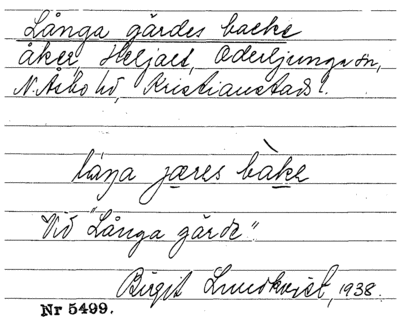 Långa gärdes backe
åker, Heljalt, Oderljunga sn,
N. Åsbo hd, Kristianstads l.
låŋa jæres bàke
Vid "Långa gärde"
Birgit Lundkvist, 1938.
Nr 5499.